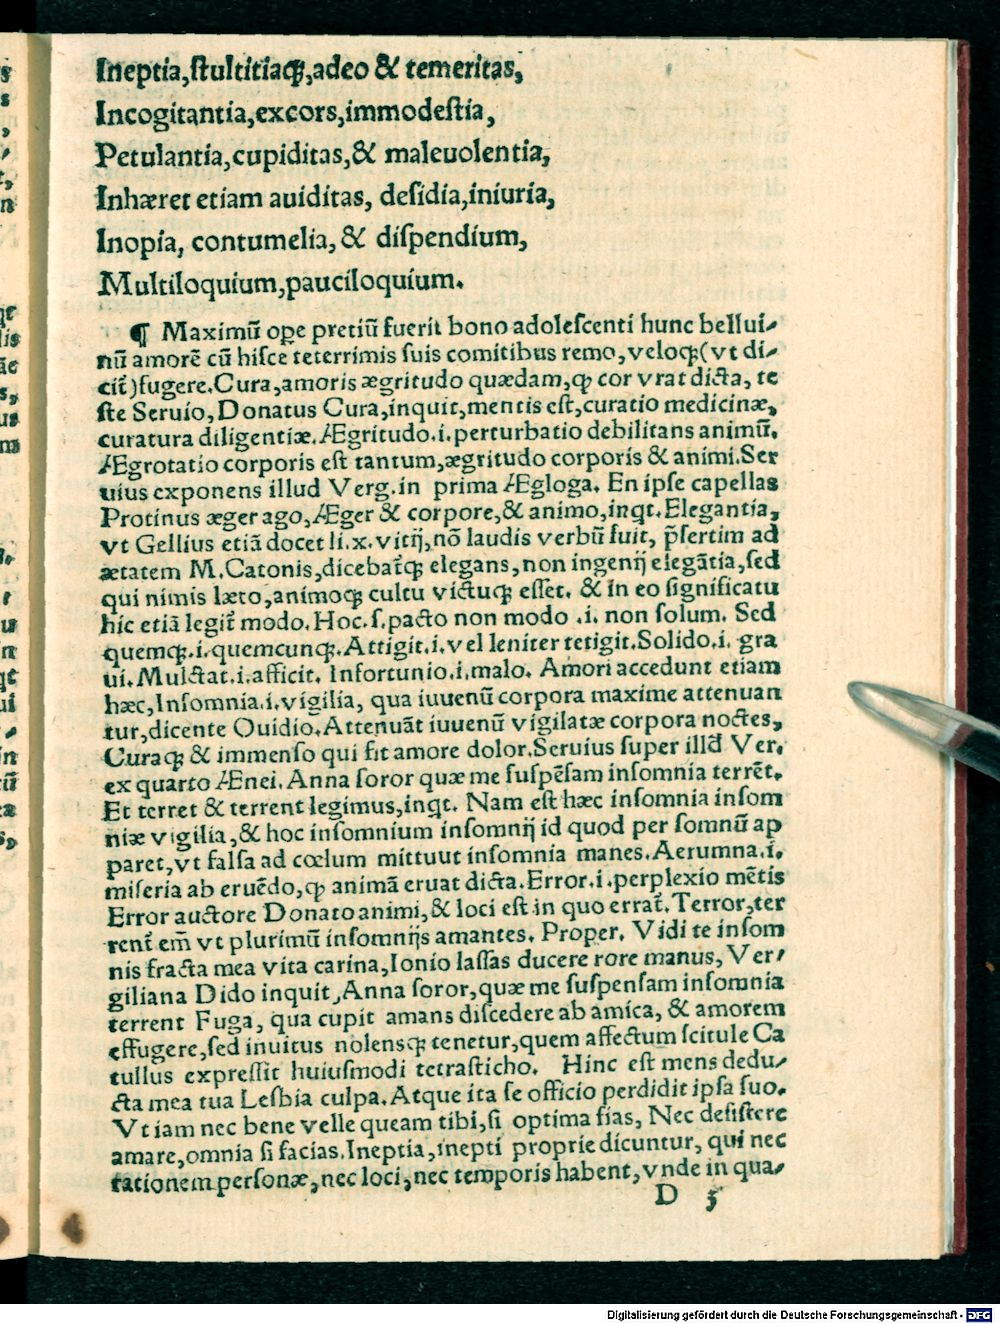 Ineptia,ſtultitiaq̃,adeo & temeritas,
Incogitantia,excors,immodeſtia,
Petulantia,cupiditas,& maleuolentia,
Inhæret etiam auiditas, deſidia,iniuria,
Inopia, contumelia,& diſpendium,
Multiloquium,pauciloquium.
¶ Maximũ oꝑe pretiũ fuerit bono adoleſcenti hunc bellui⸗
nũ amorẽ cũ hiſce teterrimis ſuis comitibus remo,veloq̃(vt di⸗
cit̃)fugere.Cura,amoris ægritudo quædam,ꝙ cor vrat dicta, te
ſte Seruio,Donatus Cura,inquit,mentis eſt,curatio medicinæ,
curatura diligentiæ.Ægritudo.i.perturbatio debilitans animũ.
Ægrotatio corporis eſt tantum,ægritudo corporis & animi.Ser
uius exponens illud Verg.in prima Ægloga. En ipſe capellas
Protinus æger ago,Æger & corpore,& animo,inqt.Elegantia,
vt Gellius etiã docet li.x.vitij,nõ laudis verbũ fuit, p̃ſertim ad
ætatem M.Catonis,dicebat̃q̃ elegans,non ingenij elegãtia,ſed
qui nimis læto,animoq̃ cultu victuq̃ eſſet. & in eo ſignificatu
hic etiã legit̃ modo.Hoc.ſ.pacto non modo .i. non ſolum. Sed
quemq̃.i.quemcunq̃.Attigit.i.vel leniter tetigit.Solido.i. gra
ui.Mulctat.i.afficit. Infortunio.i.malo. Amori accedunt etiam
hæc,Inſomnia.i.vigilia, qua iuuenũ corpora maxime attenuan
tur,dicente Ouidio.Attenuãt iuuenũ vigilatæ corpora noctes,
Curaq̃ & immenſo qui fit amore dolor.Seruius ſuper illđ Ver.
ex quarto Ænei.Anna ſoror quæ me ſuſpẽſam inſomnia terrẽt.
Et terret & terrent legimus,inqt. Nam eſt hæc inſomnia inſom
niæ vigilia,& hoc inſomnium inſomnij id quod per ſomnũ ap
paret,vt falſa ad cœlum mittuut inſomnia manes.Aerumna.i.
miſeria ab eruẽdo,ꝙ animã eruat dicta.Error.i.perplexio mẽtis
Error auctore Donato animi,& loci eſt in quo errat̃.Terror,ter
rent̃ em̃ vt plurimũ inſomnijs amantes. Proper. Vidi te inſom
nis fracta mea vita carina,Ionio laſſas ducere rore manus, Ver⸗
giliana Dido inquit,Anna ſoror,quæ me ſuſpenſam inſomnia
terrent Fuga, qua cupit amans diſcedere ab amica, & amorem
effugere,ſed inuitus nolensq̃ tenetur,quem affectum ſcitule Ca
tullus expreſſit huiuſmodi tetraſticho. Hinc eſt mens dedu⸗
cta mea tua Lesbia culpa.Atque ita ſe officio perdidit ipſa ſuo.
Vt iam nec bene velle queam tibi,ſi optima fias, Nec deſiſtere
amare,omnia ſi facias.Ineptia,inepti proprie dicuntur, qui nec
rationem perſonæ,nec loci,nec temporis habent,vnde in qua⸗
D 5
Digitalisierung gefördert durch die Deutsche Forschungsgemeinschaft - DFG